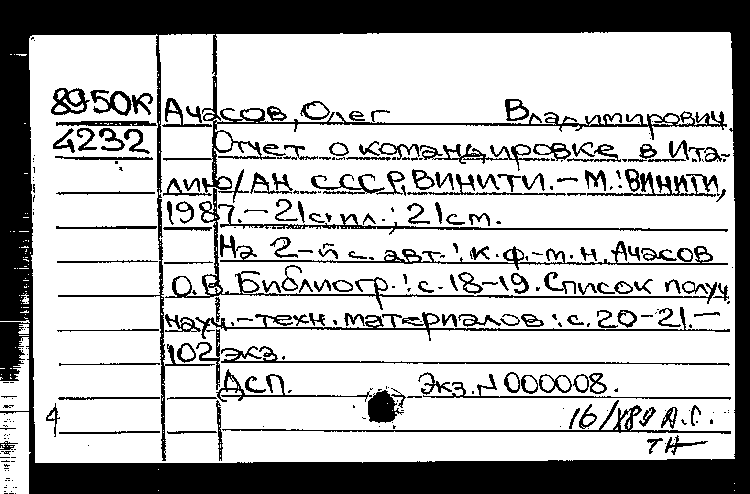 8950К Ачасов, Олег Владимирович.
4232 Отчет о командировке в Ита-
лию/АН СССР, ВИНИТИ.-М.:ВИНИТИ,
1987.-21с:ил.; 21см.
На 2-й с. авт.: к.ф.-м.н. Ачасов
О.В. Библиогр.: с.18-19. Список получ.
науч.-техн. материалов: с.20-21.-
102 экз.
ДСП. Экз. N 000008.
4 16/X89 А.С.
ТН